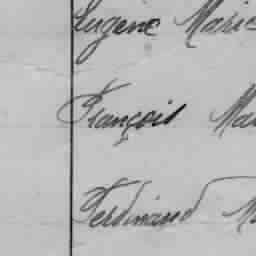 Eugène Marie
François Ma
Ferdinand M